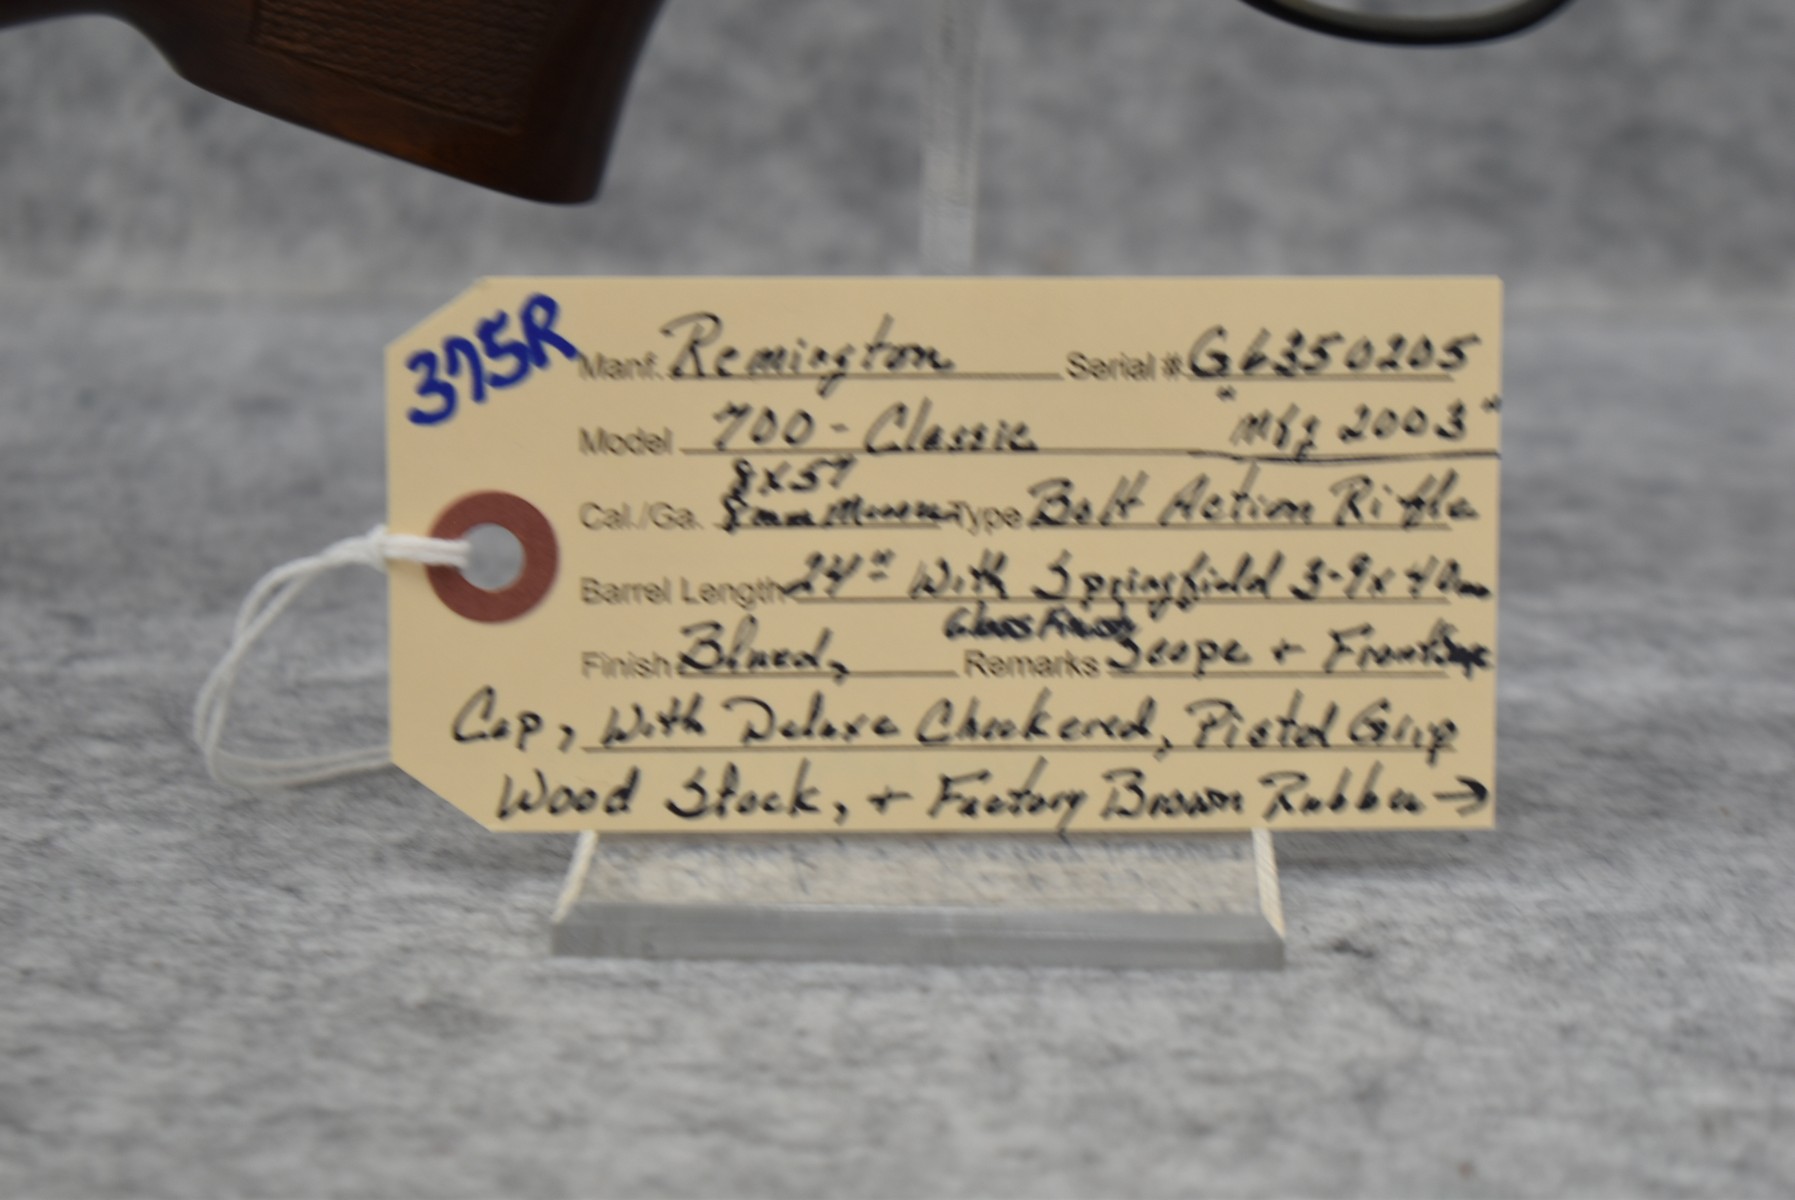 375R
Manf. Remington Serial # G6350205
Model 700 - Classic "Mfg 2003"
8x57
Cal./Ga. 8mm Mauser Type Bolt Action Rifle
Barrel Length 24" With Springfield 3-9x40mm
Gloss Finish
Finish Blued, Remarks Scope + Front
Cap, With Deluxe Checkered, Pistol Grip
Wood Stock, + Factory Brown Rubber →